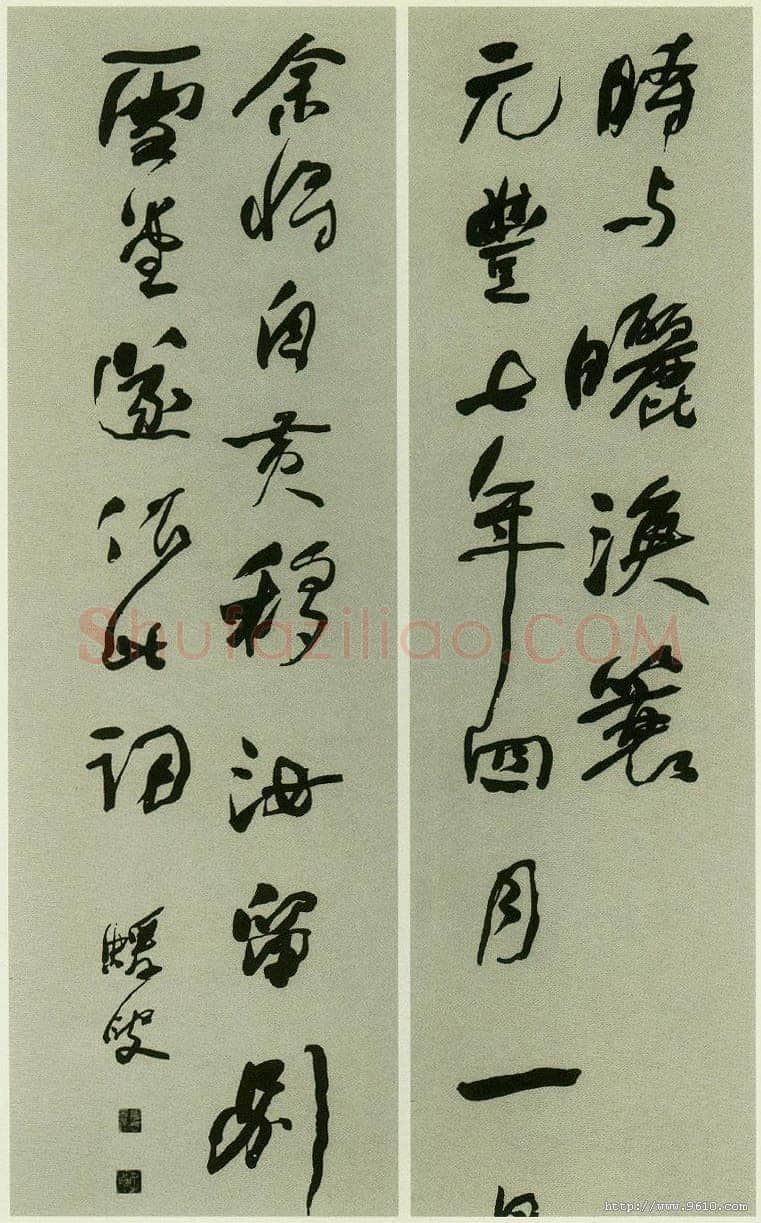 時与曬漁蓑
元豐七年四月一日
余將自黃移汝留別
雪堂遂作此詞
蝯叟
Shufaziliao.COM
http://www.9610.com